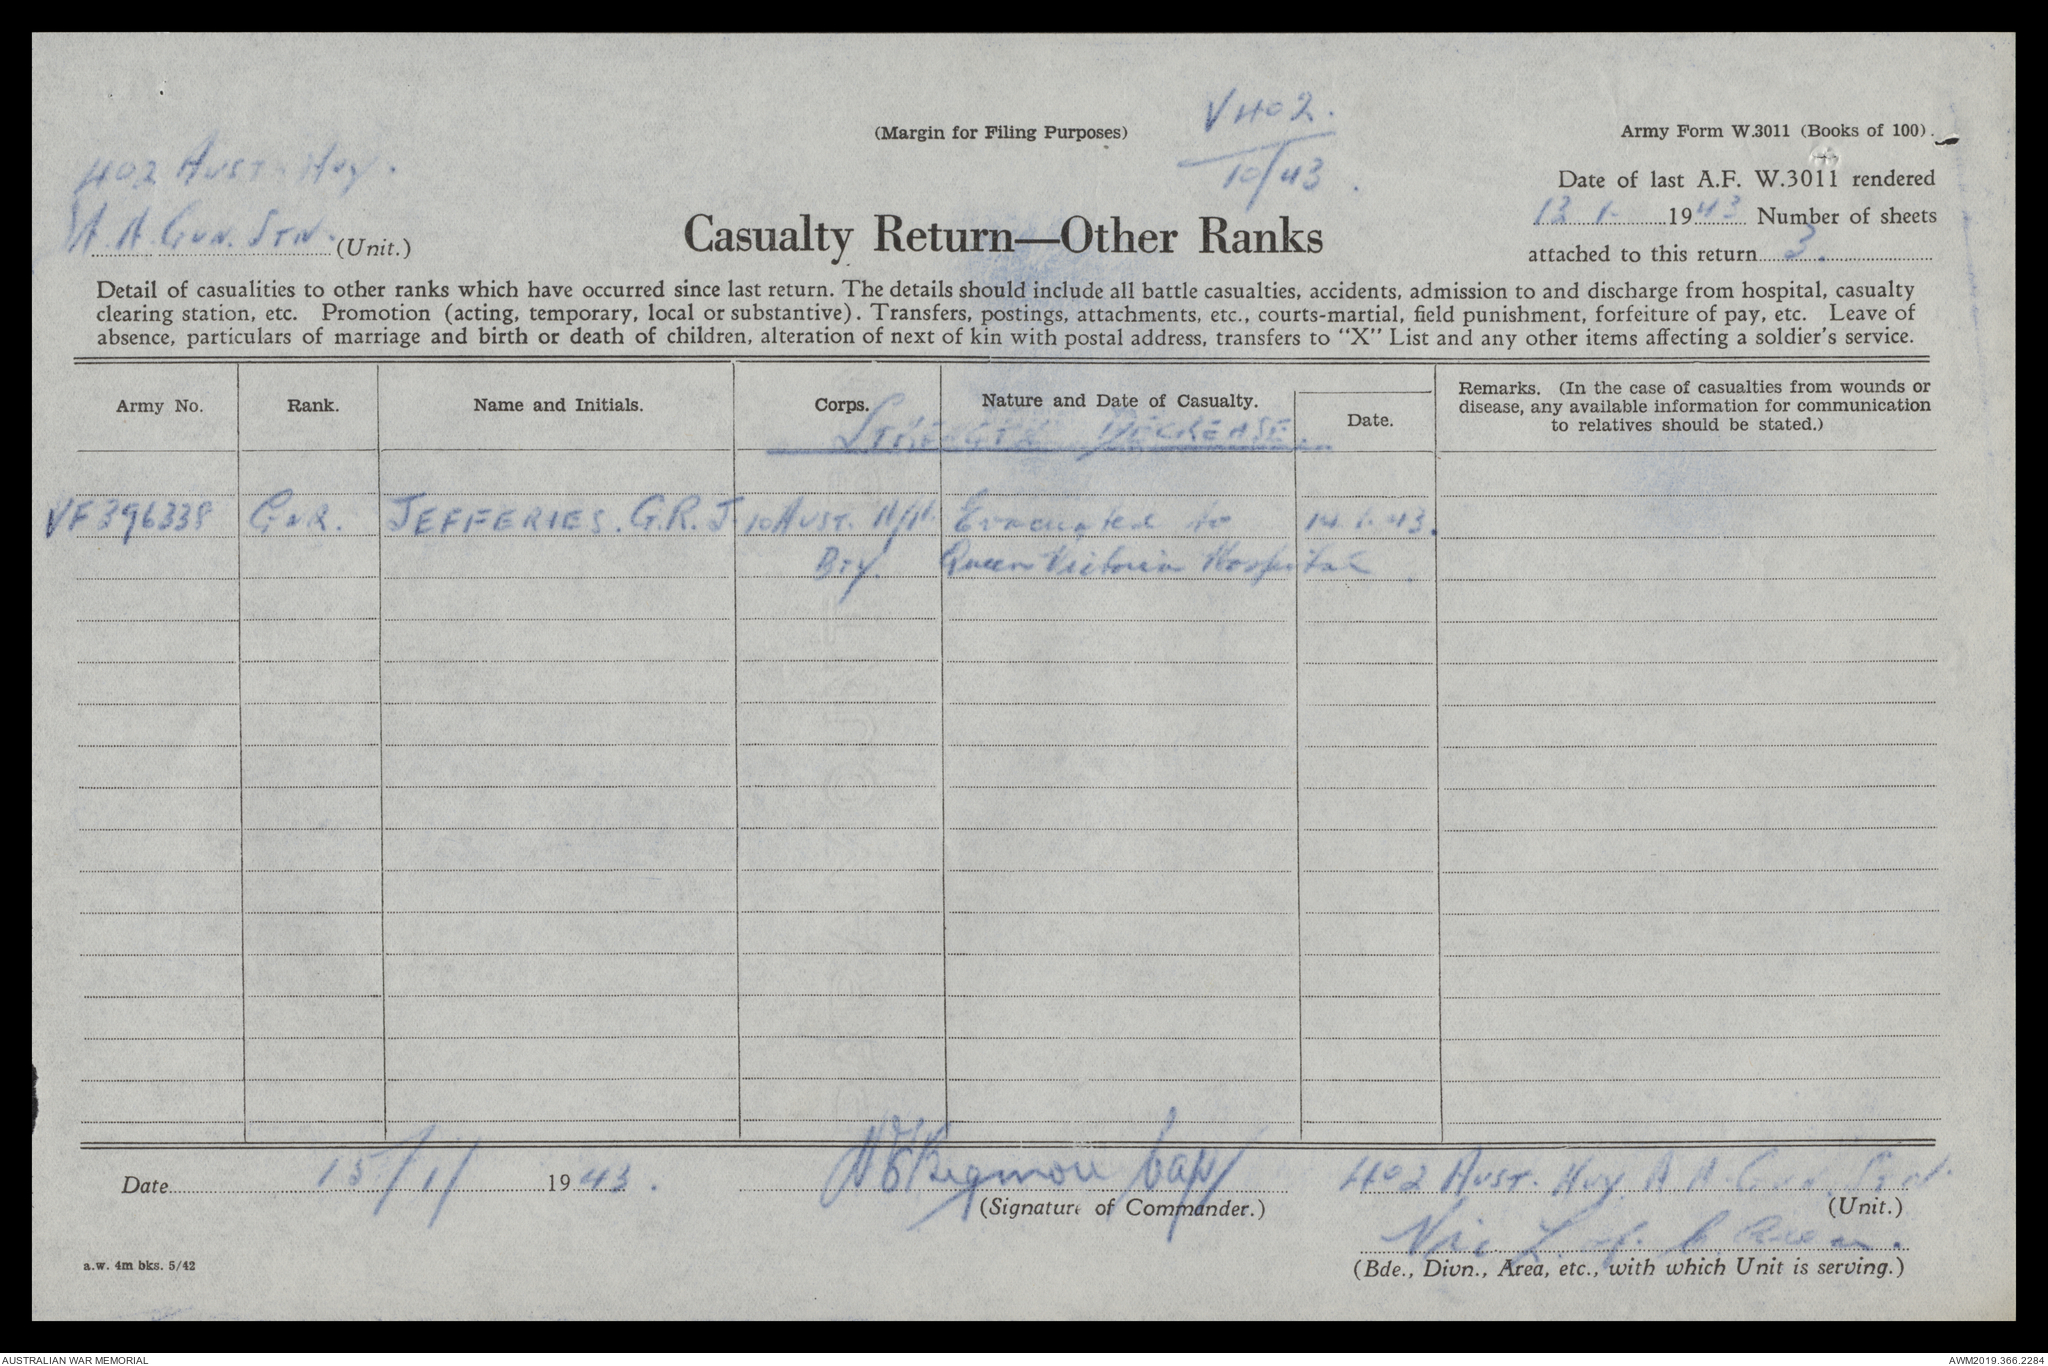 V402.
10/43.
(Margin for Filing Purposes)
Army Form W.3011 (Books of 100).
402 AUST. Hvy.
A.A. GUN. STN. (Unit.)
Casualty Return—Other Ranks
Date of last A.F. W.3011 rendered
13. 1. 1943 Number of sheets
attached to this return 3.
Detail of casualities to other ranks which have occurred since last return. The details should include all battle casualties, accidents, admission to and discharge from hospital, casualty
clearing station, etc. Promotion (acting, temporary, local or substantive). Transfers, postings, attachments, etc., courts-martial, field punishment, forfeiture of pay, etc. Leave of
absence, particulars of marriage and birth or death of children, alteration of next of kin with postal address, transfers to "X" List and any other items affecting a soldier's service.
Army No. Rank. Name and Initials. Corps. Nature and Date of Casualty. Date. Remarks. (In the case of casualties from wounds or
disease, any available information for communication
to relatives should be stated.)
STRENGTH DECREASE.
VF396338 GNR. JEFFERIES. G.R.J. 10 AUST. A/A. Evacuated to 14.1.43.
Bty. Queen Victoria Hospital.
Date 15/1/ 1943. Capt 402 AUST. Hvy. A A. Gun. Stn.
(Signature of Commander.) (Unit.)
Vic L. of C. Area.
a.w. 4m bks. 5/42
(Bde., Divn., Area, etc., with which Unit is serving.)
AUSTRALIAN WAR MEMORIAL
AWM2019.366.2284